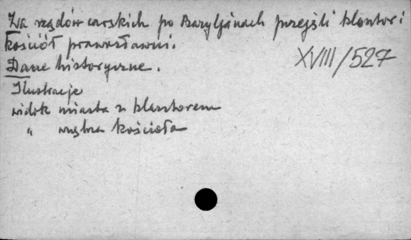 Za rządów carskich po Bazyljanach przejęli klasztor i
kościół prawosławni.
Dane historyczne.
XVIII/527
Ilustracje
widok miasta z klasztorem
" wnętrza kościoła